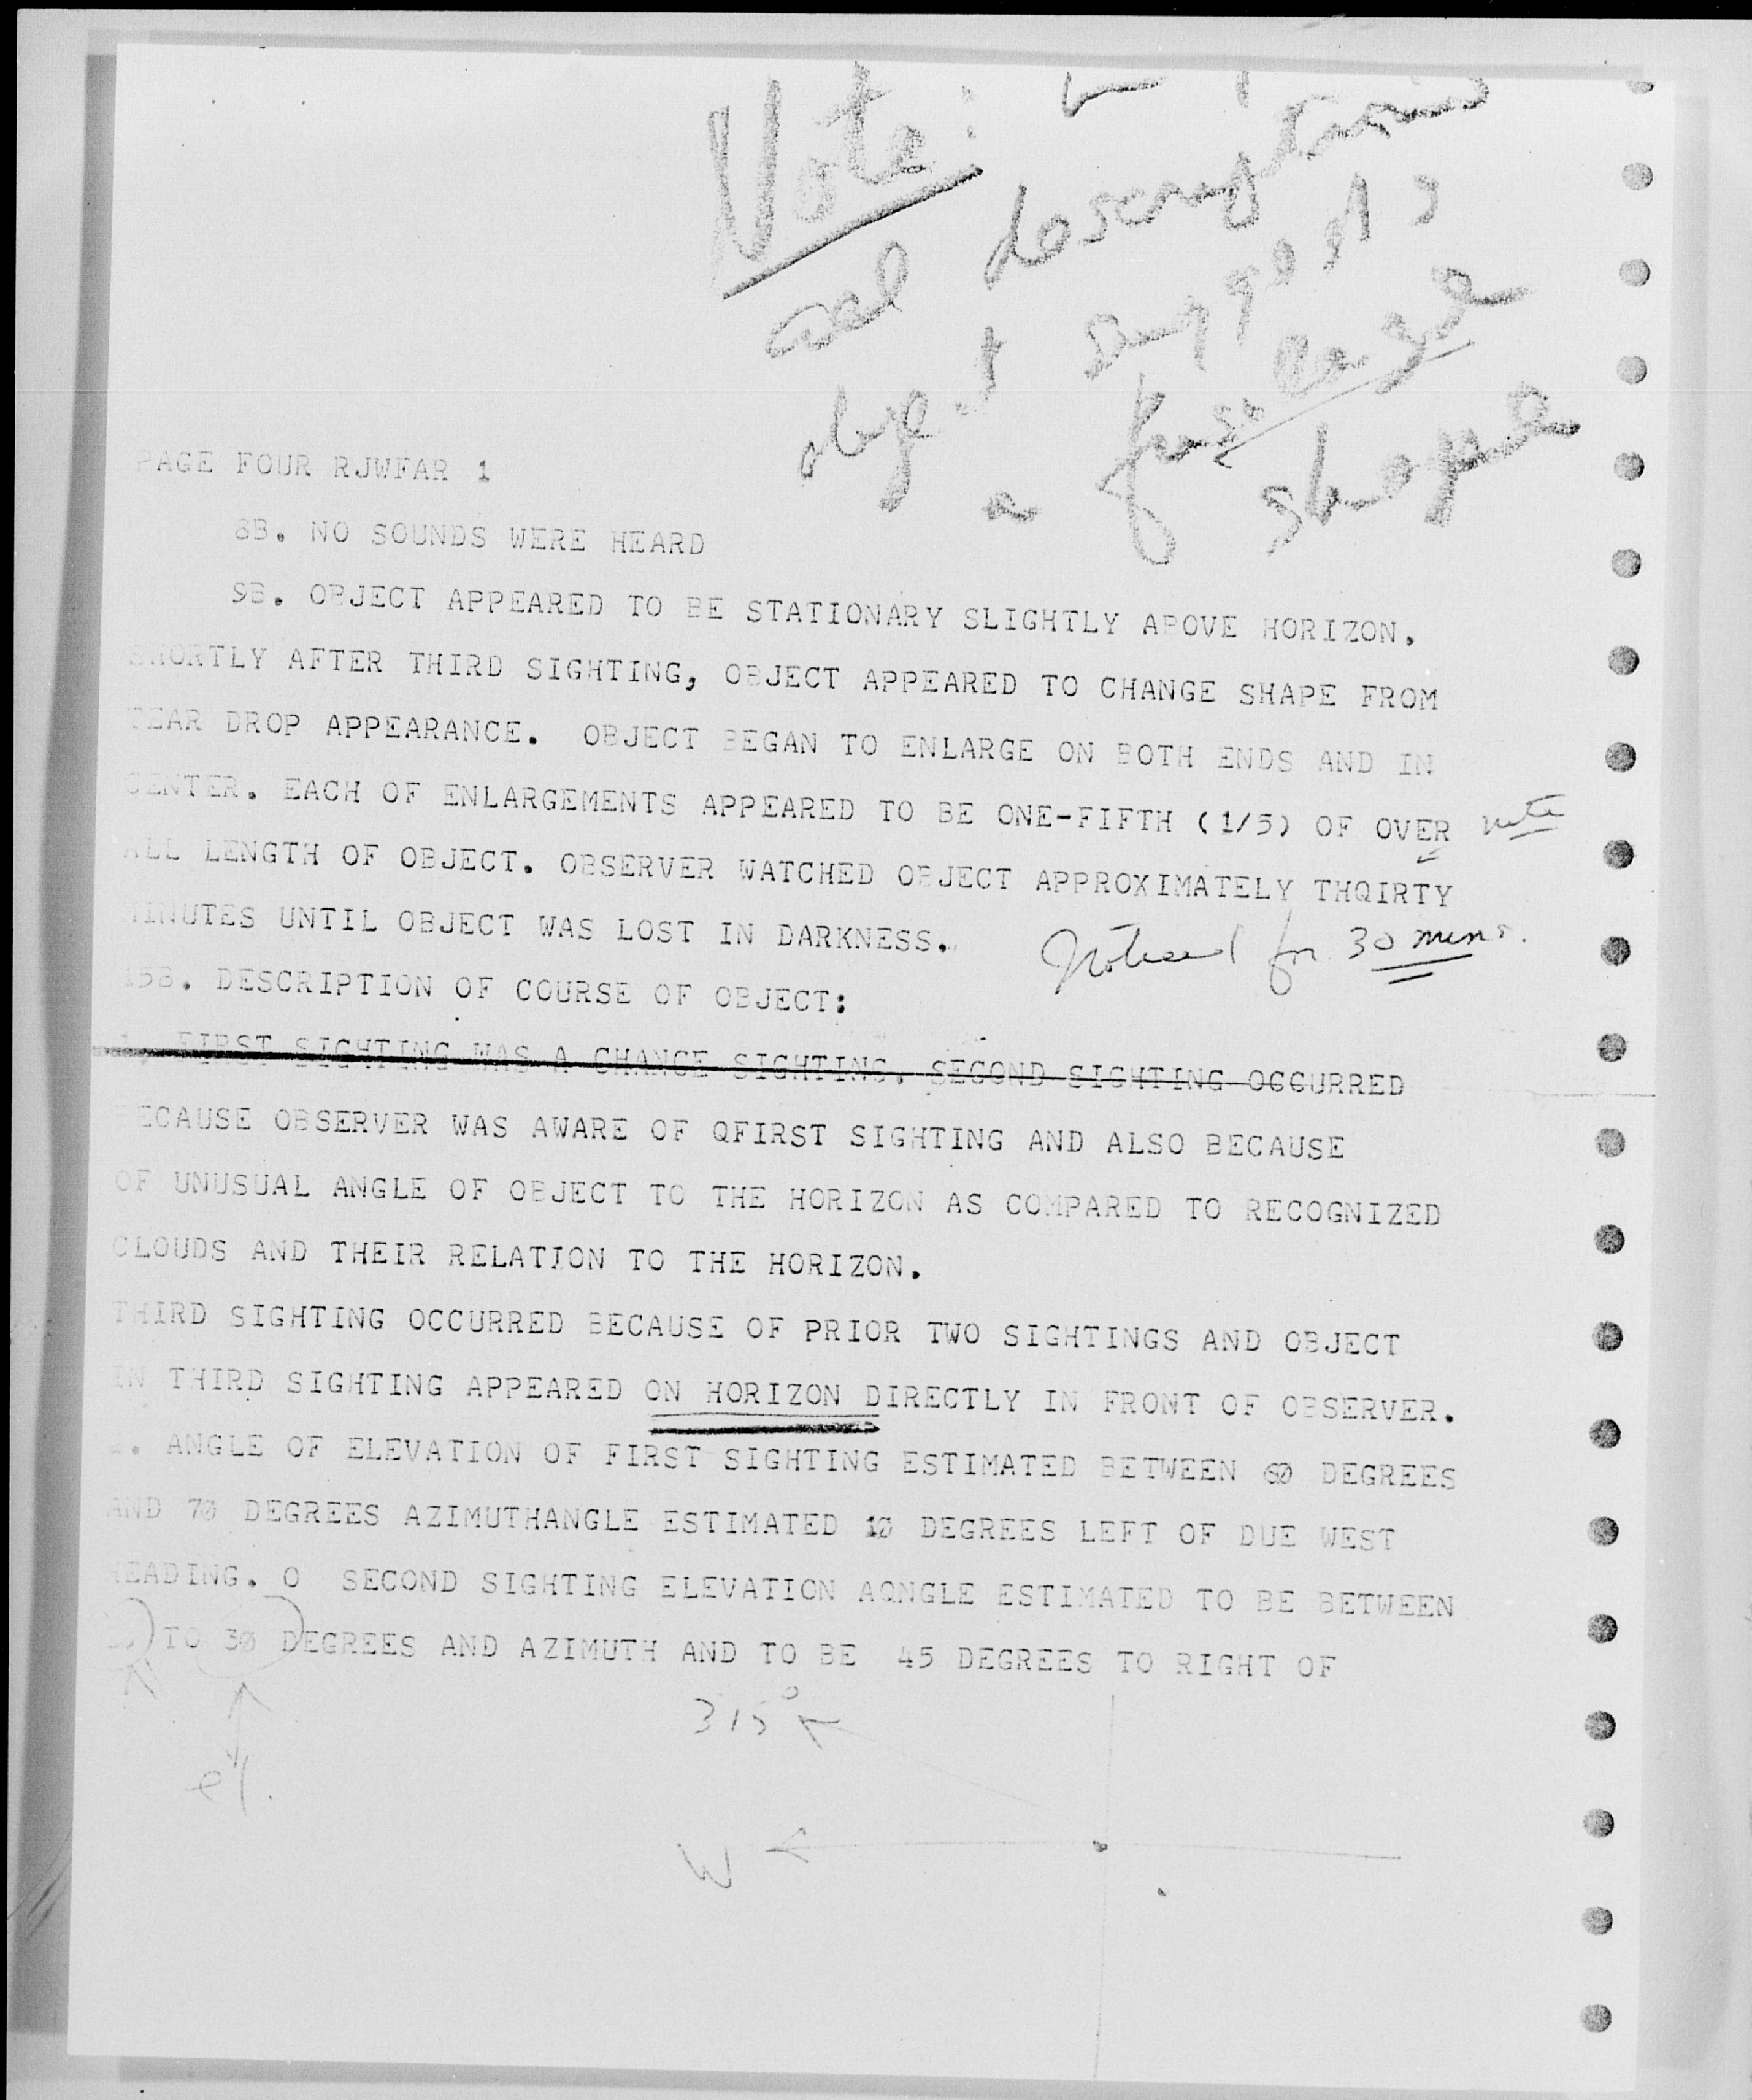 Note:
descriptions
object suggests
a fuselage
shape
PAGE FOUR RJWFAR 1
8B. NO SOUNDS WERE HEARD
9B. OBJECT APPEARED TO BE STATIONARY SLIGHTLY ABOVE HORIZON.
SHORTLY AFTER THIRD SIGHTING, OBJECT APPEARED TO CHANGE SHAPE FROM
TEAR DROP APPEARANCE. OBJECT BEGAN TO ENLARGE ON BOTH ENDS AND IN
CENTER. EACH OF ENLARGEMENTS APPEARED TO BE ONE-FIFTH (1/5) OF OVER note
ALL LENGTH OF OBJECT. OBSERVER WATCHED OBJECT APPROXIMATELY THQIRTY
MINUTES UNTIL OBJECT WAS LOST IN DARKNESS.
Noticed for 30 mins.
DESCRIPTION OF COURSE OF OBJECT:
FIRST SIGHTING WAS A CHANCE SIGHTING. SECOND SIGHTING OCCURRED
BECAUSE OBSERVER WAS AWARE OF QFIRST SIGHTING AND ALSO BECAUSE
OF UNUSUAL ANGLE OF OBJECT TO THE HORIZON AS COMPARED TO RECOGNIZED
CLOUDS AND THEIR RELATION TO THE HORIZON.
THIRD SIGHTING OCCURRED BECAUSE OF PRIOR TWO SIGHTINGS AND OBJECT
IN THIRD SIGHTING APPEARED ON HORIZON DIRECTLY IN FRONT OF OBSERVER.
ANGLE OF ELEVATION OF FIRST SIGHTING ESTIMATED BETWEEN 60 DEGREES
AND 70 DEGREES AZIMUTHANGLE ESTIMATED 10 DEGREES LEFT OF DUE WEST
HEADING. O SECOND SIGHTING ELEVATION AQNGLE ESTIMATED TO BE BETWEEN
TO 30 DEGREES AND AZIMUTH AND TO BE 45 DEGREES TO RIGHT OF
315°
el.
W